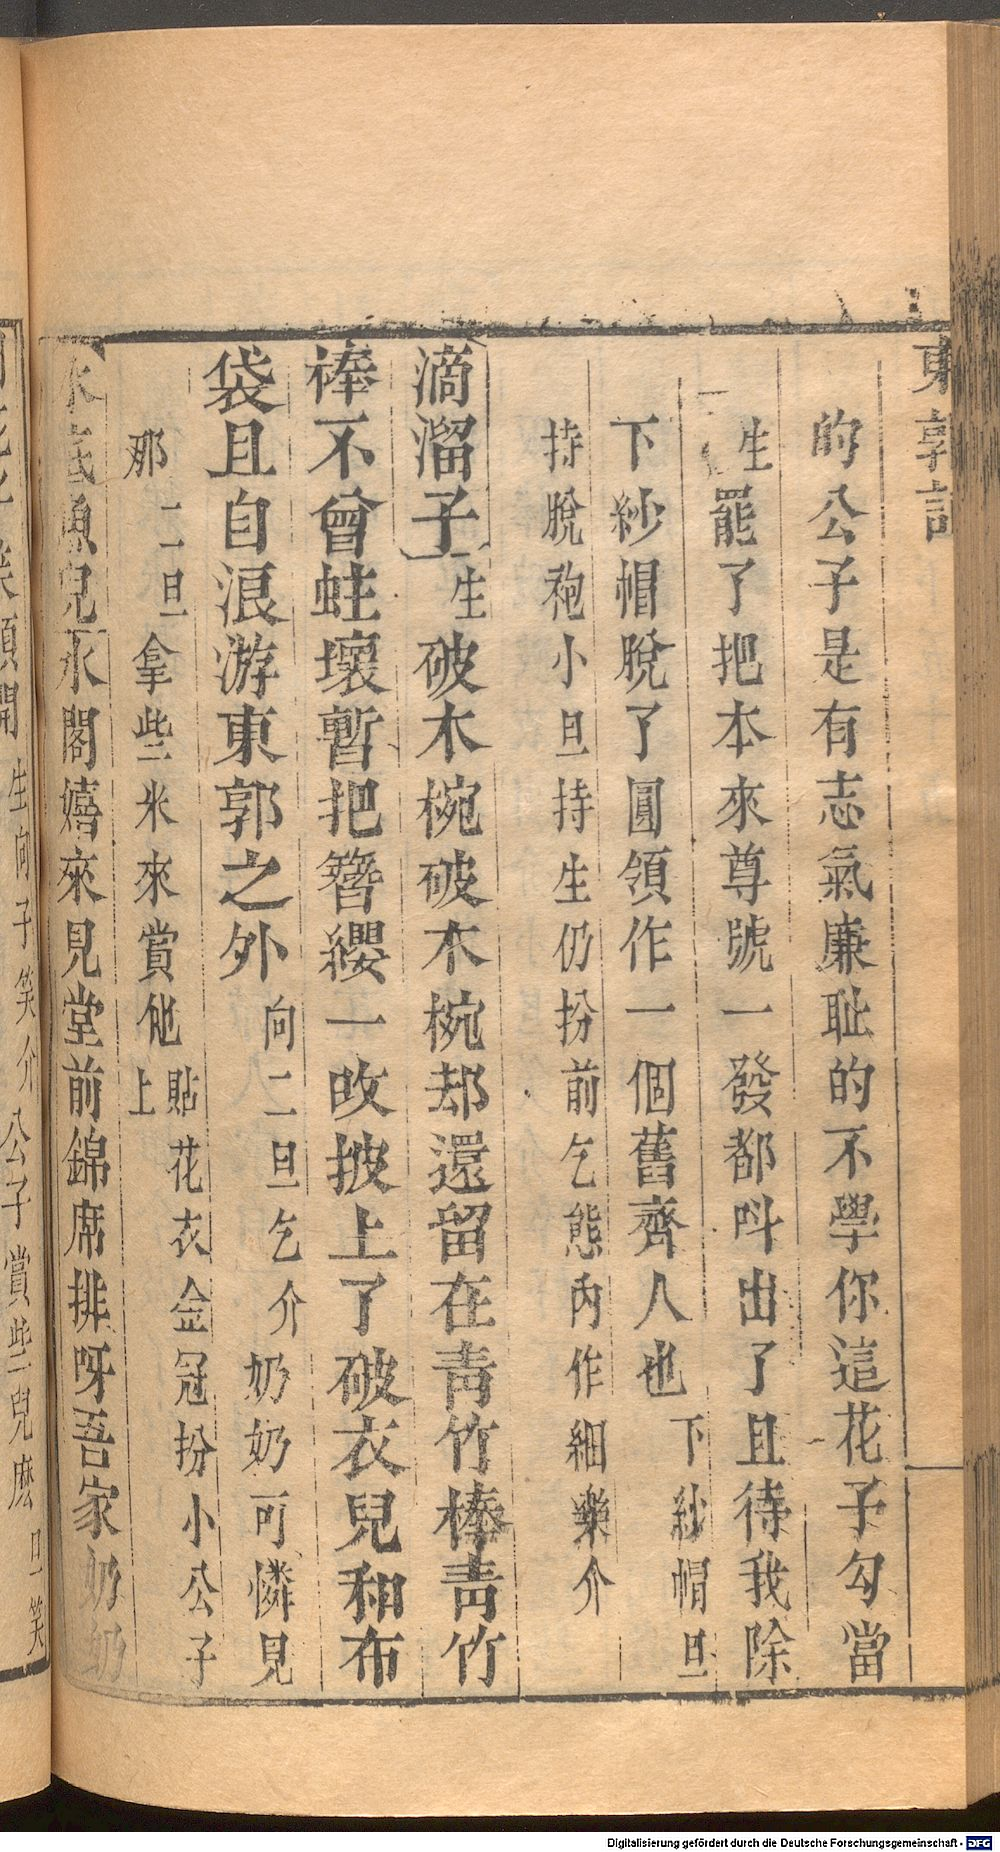 東郭記
的公子是有志氣廉耻的不學你這花子勾當
生罷了把本來尊號一發都呌出了且待我除
下紗帽脫了圓領作一個舊齊人也下紗帽旦
持脫袍小旦持生仍扮前乞態內作細樂介
滴溜子生破木椀破木椀却還留在青竹棒青竹
棒不曾蛀壞暫把簪纓一攺披上了破衣兒和布
袋且自浪游東郭之外向二旦乞介奶奶可憐見
那二旦拿些米來賞他貼花衣金冠扮小公子上
水底魚兒水閣嬉來見堂前錦席排呀吾家奶奶
笑頻開生向子笑介公子賞些兒麽旦笑
Digitalisierung gefördert durch die Deutsche Forschungsgemeinschaft - DFG